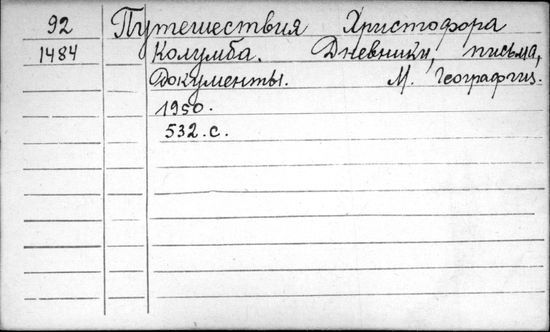 92 Путешествия Христофора
1484 Колумба. Дневники, письма,
документы. М. Географгиз.
1950.
532. с.